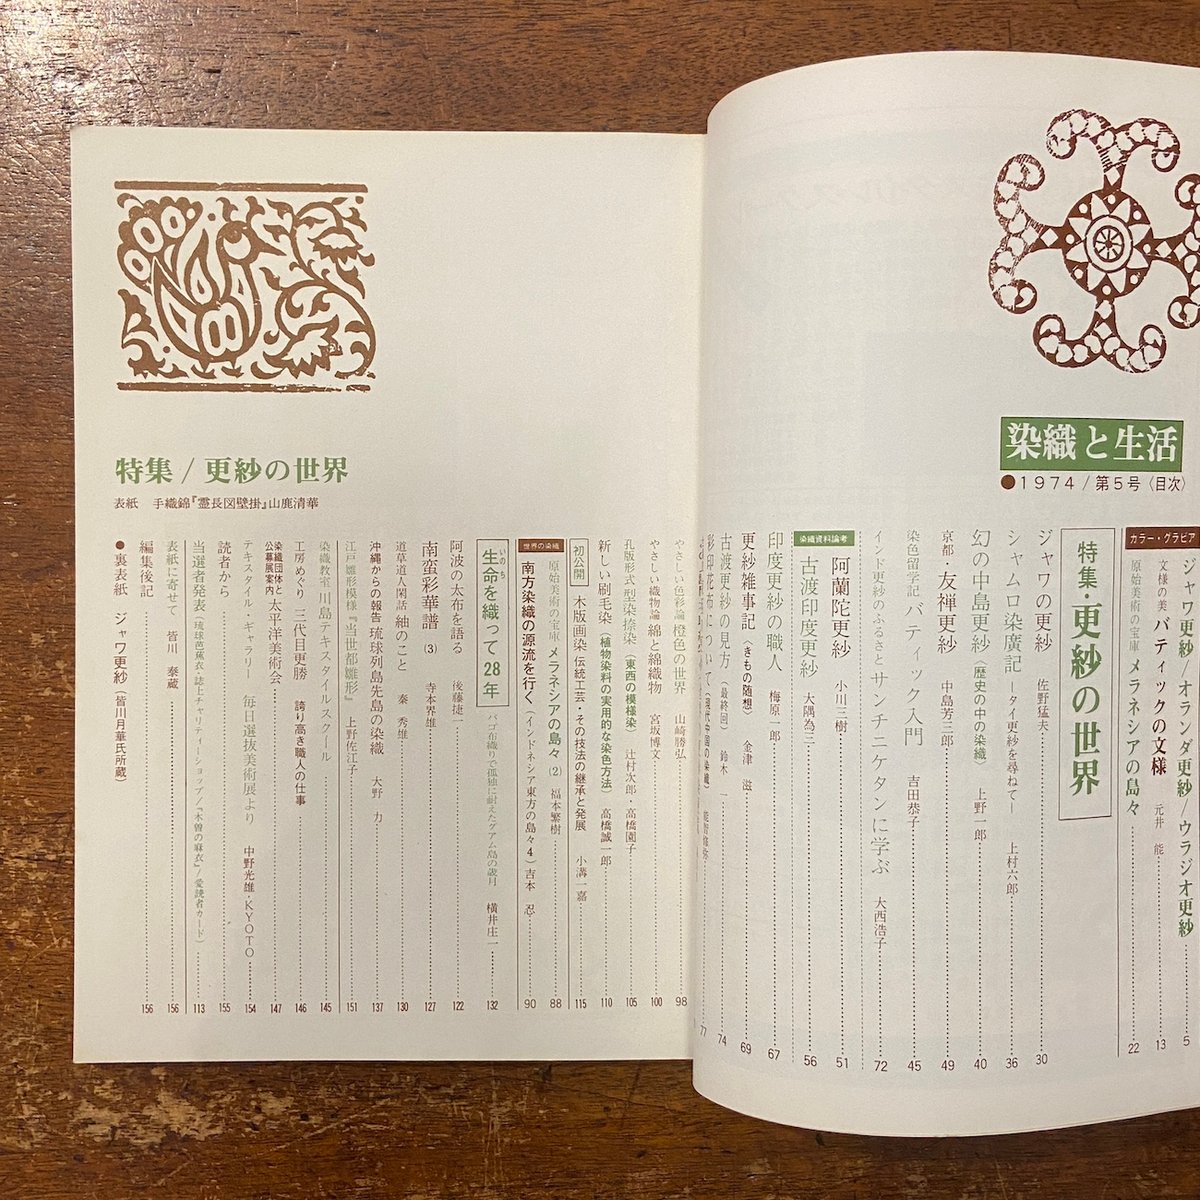 染織と生活
●1974/第5号〈目次〉
カラー・グラビア
ジャワ更紗/オランダ更紗/ウラジオ更紗 5
文様の美 バティックの文様 元井 能 13
原始美術の宝庫 メラネシアの島々 22
特集・更紗の世界
ジャワの更紗 佐野猛夫 30
シャムロ染廣記 —タイ更紗を尋ねて— 上村六郎 36
幻の中島更紗(歴史の中の染織) 上野一郎 40
京都・友禅更紗 中島芳三郎 49
染色留学記 バティック入門 吉田恭子 45
インド更紗のふるさと サンチニケタンに学ぶ 大西浩子 72
阿蘭陀更紗 小川三樹 51
染織資料論考
古渡印度更紗 大隅為三 56
印度更紗の職人 梅原一郎 67
更紗雑事記(きもの随想) 金津 滋 69
古渡更紗の見方(最終回) 鈴木 一 74
彩印花布について(現代中国の染織) 77
特集/更紗の世界
表紙 手織錦『霊長図壁掛』山鹿清華
やさしい色彩論 橙色の世界 山崎勝弘 98
やさしい織物論 綿と綿織物 宮坂博文 100
孔版形式型染捺染(東西の模様染) 辻村次郎・高橋園子 105
新しい刷毛染(植物染料の実用的な染色方法) 高橋誠一郎 110
初公開 木版画染 伝統工芸・その技法の継承と発展 小溝一嘉 115
原始美術の宝庫 メラネシアの島々(2) 福本繁樹 88
世界の染織 南方染織の源流を行く(インドネシア東方の島々4) 吉本 忍 90
生命を織って28年 パゴ布織りで孤独に耐えたグアム島の歳月 横井庄一 132
いのち
阿波の太布を語る 後藤捷一 122
南蛮彩華譜(3) 寺本界雄 127
道草道人閑話 紬のこと 秦 秀雄 130
沖縄からの報告 琉球列島先島の染織 大野 力 137
江戸雛形模様『当世都雛形』 上野佐江子 151
染織教室 川島テキスタイルスクール 145
工房めぐり 三代目更勝 誇り高き職人の仕事 146
染織団体と公募展案内 太平洋美術会 147
テキスタイル・ギャラリー 毎日選抜美術展より 中野光雄・KYOTO 154
読者から 155
当選者発表(琉球芭蕉衣・誌上チャリティーショップ/『木曽の麻衣』/愛読者カード) 113
表紙に寄せて 皆川 泰蔵 156
編集後記 156
●裏表紙 ジャワ更紗(皆川月華氏所蔵)